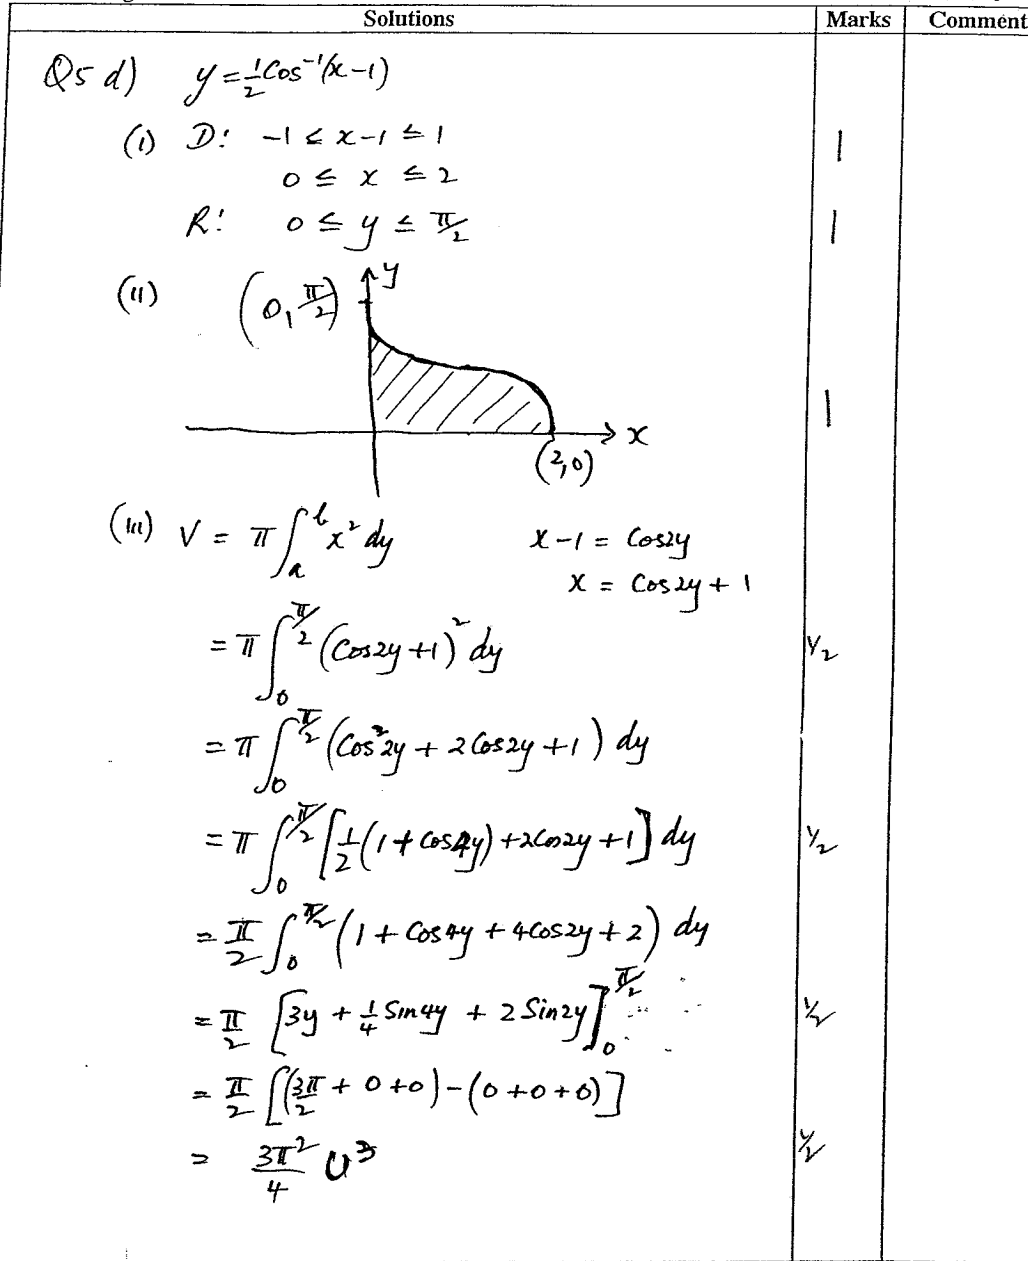 Solutions Marks Comment
Q5 d) y = ½ Cos⁻¹(x-1)
(i) D: -1 ≤ x-1 ≤ 1 1
0 ≤ x ≤ 2
R: 0 ≤ y ≤ π/2 1
(ii) (0, π/2) y
1
x
(2,0)
(iii) V = π ∫ₐᵇ x² dy x-1 = Cos2y
x = Cos2y + 1
= π ∫₀^(π/2) (Cos2y +1)² dy ½
= π ∫₀^(π/2) (Cos²2y + 2Cos2y +1) dy
= π ∫₀^(π/2) [½(1+cos4y)+2cos2y+1] dy ½
= π/2 ∫₀^(π/2) (1 + Cos4y + 4cos2y + 2) dy
= π/2 [3y + ¼ Sin4y + 2 Sin2y]₀^(π/2) ½
= π/2 [(3π/2 + 0 + 0) - (0 + 0 + 0)]
= 3π²/4 U³ ½